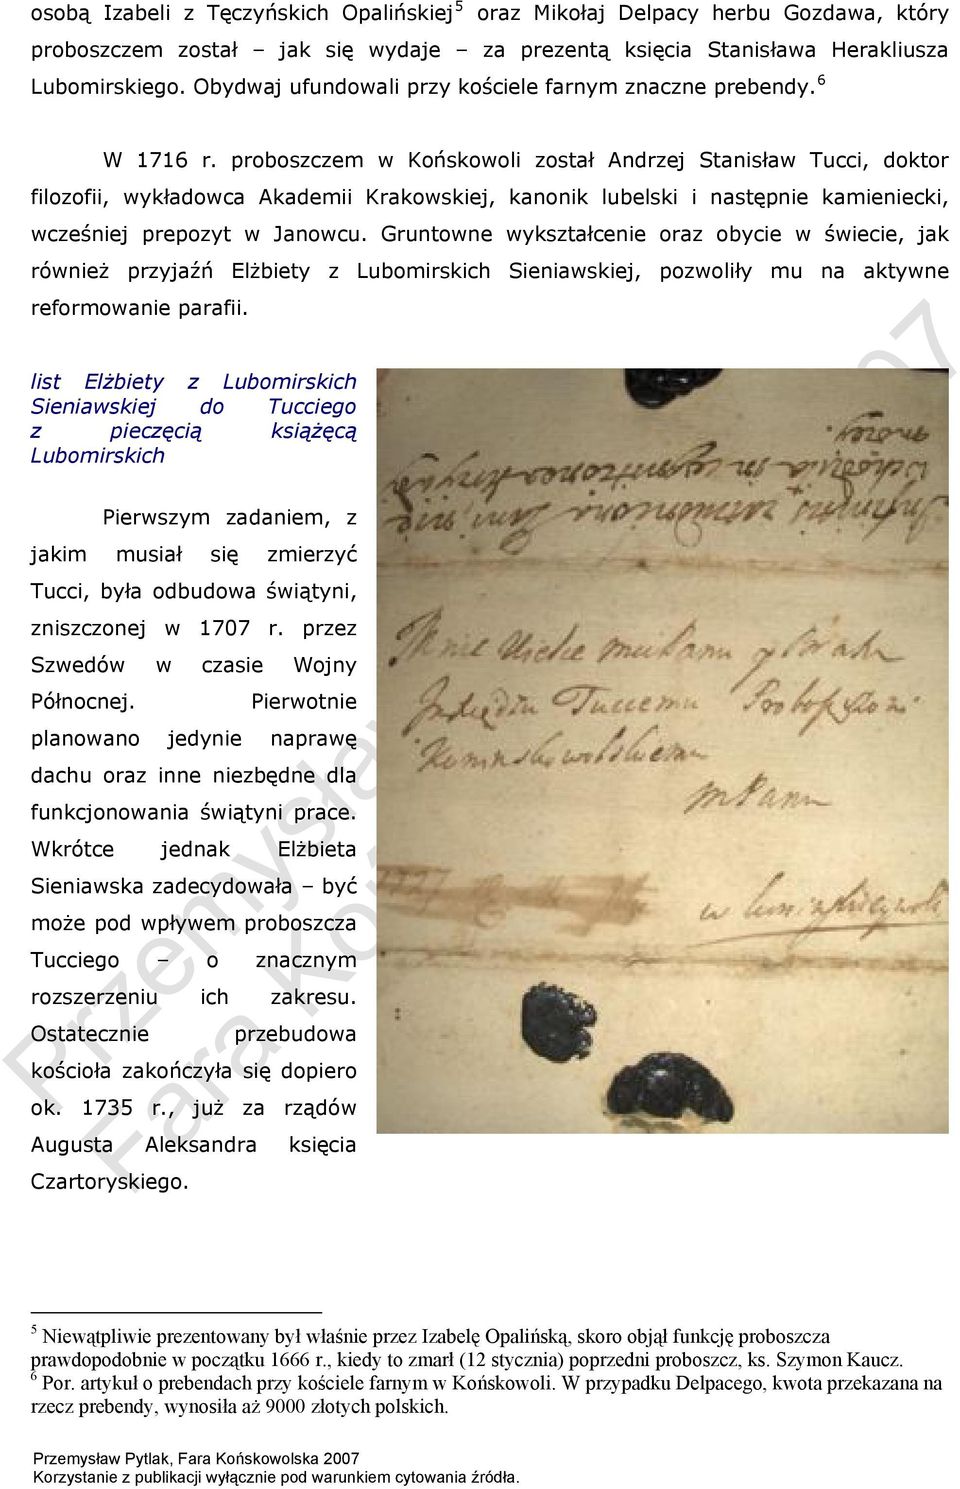 osobą Izabeli z Tęczyńskich Opalińskiej 5 oraz Mikołaj Delpacy herbu Gozdawa, który
proboszczem został – jak się wydaje – za prezentą księcia Stanisława Herakliusza
Lubomirskiego. Obydwaj ufundowali przy kościele farnym znaczne prebendy. 6
W 1716 r. proboszczem w Końskowoli został Andrzej Stanisław Tucci, doktor
filozofii, wykładowca Akademii Krakowskiej, kanonik lubelski i następnie kamieniecki,
wcześniej prepozyt w Janowcu. Gruntowne wykształcenie oraz obycie w świecie, jak
również przyjaźń Elżbiety z Lubomirskich Sieniawskiej, pozwoliły mu na aktywne
reformowanie parafii.
list Elżbiety z Lubomirskich
Sieniawskiej do Tucciego
z pieczęcią książęcą
Lubomirskich
Pierwszym zadaniem, z
jakim musiał się zmierzyć
Tucci, była odbudowa świątyni,
zniszczonej w 1707 r. przez
Szwedów w czasie Wojny
Północnej. Pierwotnie
planowano jedynie naprawę
dachu oraz inne niezbędne dla
funkcjonowania świątyni prace.
Wkrótce jednak Elżbieta
Sieniawska zadecydowała – być
może pod wpływem proboszcza
Tucciego – o znacznym
rozszerzeniu ich zakresu.
Ostatecznie przebudowa
kościoła zakończyła się dopiero
ok. 1735 r., już za rządów
Augusta Aleksandra księcia
Czartoryskiego.
Tuccemu
mPanu
w
5 Niewątpliwie prezentowany był właśnie przez Izabelę Opalińską, skoro objął funkcję proboszcza
prawdopodobnie w początku 1666 r., kiedy to zmarł (12 stycznia) poprzedni proboszcz, ks. Szymon Kaucz.
6 Por. artykuł o prebendach przy kościele farnym w Końskowoli. W przypadku Delpacego, kwota przekazana na
rzecz prebendy, wynosiła aż 9000 złotych polskich.
Przemysław Pytlak, Fara Końskowolska 2007
Korzystanie z publikacji wyłącznie pod warunkiem cytowania źródła.